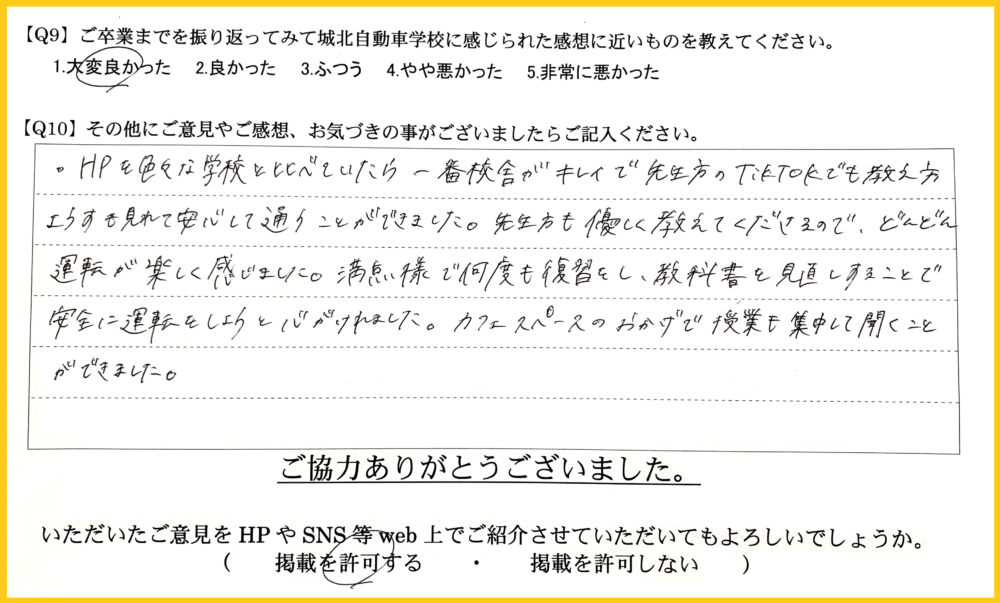 【Q9】ご卒業までを振り返ってみて城北自動車学校に感じられた感想に近いものを教えてください。
1.大変良かった 2.良かった 3.ふつう 4.やや悪かった 5.非常に悪かった
【Q10】その他にご意見やご感想、お気づきの事がございましたらご記入ください。
。HPを色々な学校と比べていたら一番校舎がキレイで先生方のTikTokでも教え方
ようすも見れて安心して通うことができました。先生方も優しく教えてくださるので、どんどん
運転が楽しく感じました。満点様で何度も復習をし、教科書を見直しすることで
安全に運転をしようと心がけれました。カフェスペースのおかげで授業も集中して聞くこと
ができました。
ご協力ありがとうございました。
いただいたご意見をHPやSNS等web上でご紹介させていただいてもよろしいでしょうか。
( 掲載を許可する ・ 掲載を許可しない )